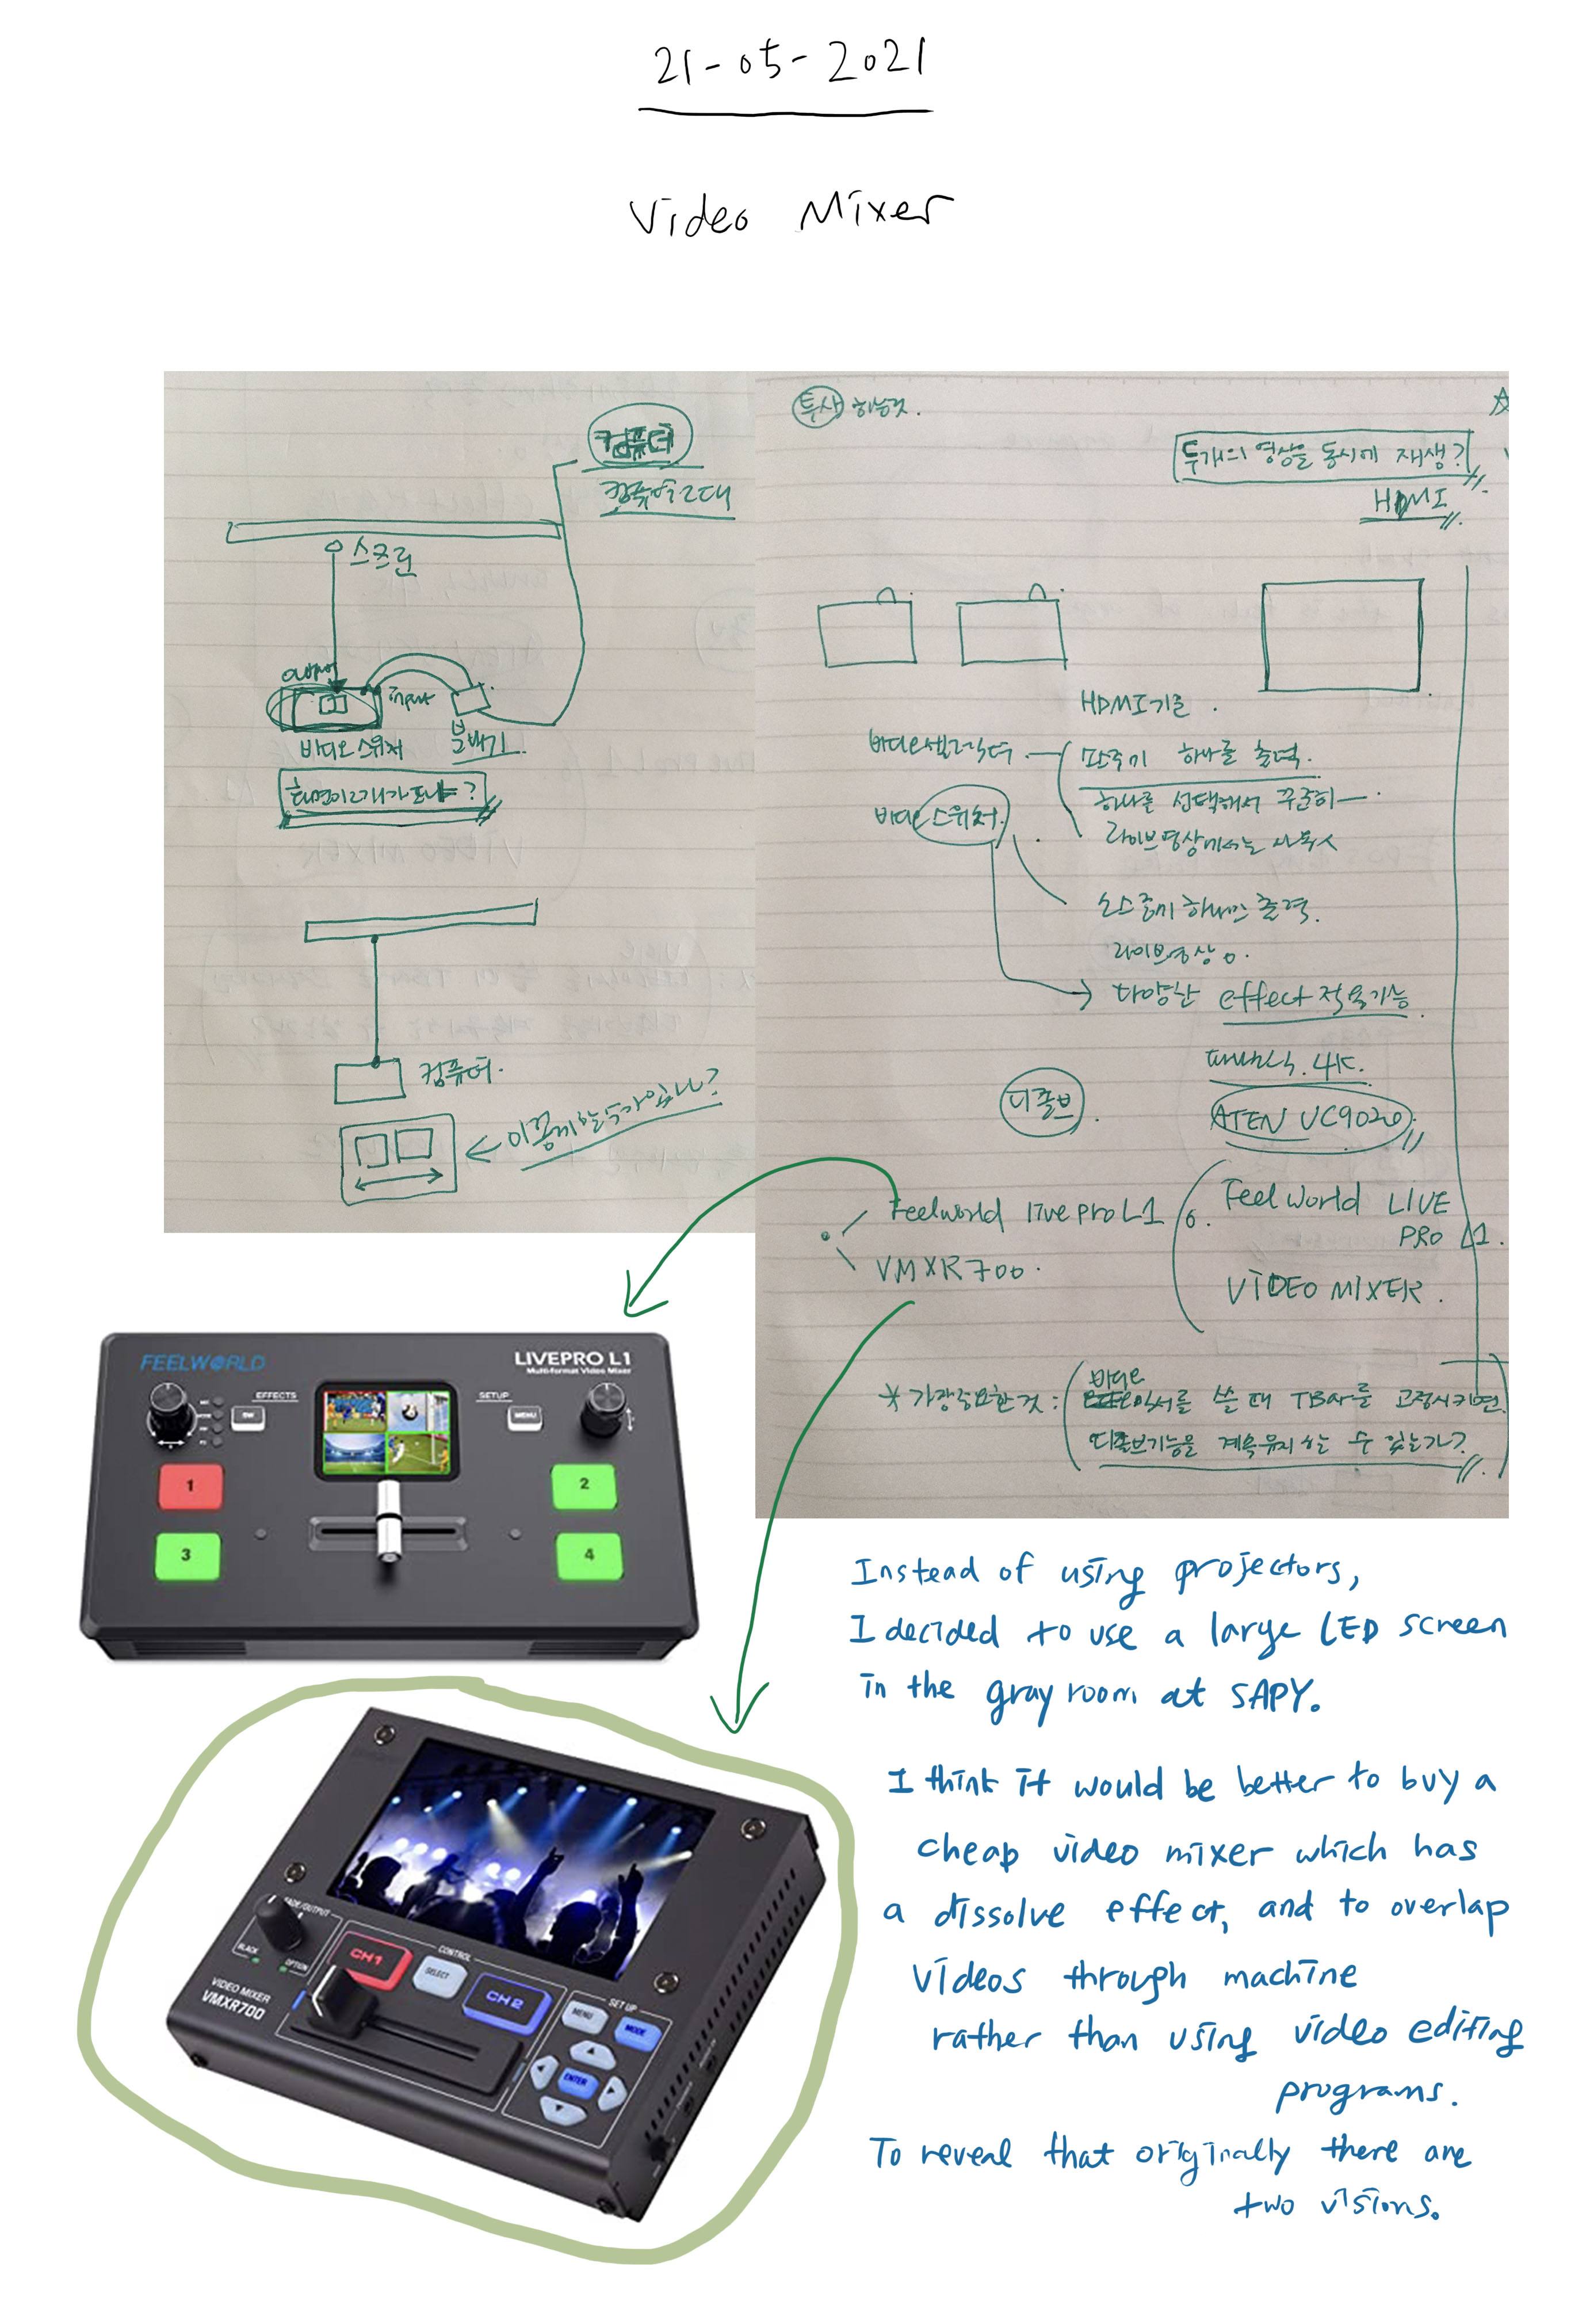 21-05-2021
Video Mixer
컴퓨터
스크린
output
input
비디오스위처
분배기
화면이 2개가 되나?
컴퓨터.
이렇게 할 수가 있나?
투사 하는것.
두개의 영상을 동시에 재생?
HDMI
HDMI 기준.
비디오셀렉터
하나를 출력.
하나를 선택해서 꾸준히
라이브영상에서는
비디오스위처.
소스중에 하나만 출력.
라이브영상 o.
다양한 effect 적용가능
4K.
디졸브.
ATEN UC9020
Feelworld live pro L1
VMXR700.
6. Feelworld LIVE
PRO L1.
VIDEO MIXER.
* 가장중요한것: 비디오
믹서를 쓸 때 TBar를 고정시키면
디졸브기능을 계속유지 하는 수 있는가?
FEELWORLD
LIVEPRO L1
Multi-format Video Mixer
EFFECTS
SETUP
MENU
1
2
3
4
FADE/OUTPUT
BLACK
OPTION
CONTROL
CH1
SELECT
CH2
VIDEO MIXER
VMXR700
SET UP
MENU
MODE
ENTER
Instead of using projectors,
I decided to use a large LED screen
in the gray room at SAPY.
I think it would be better to buy a
cheap video mixer which has
a dissolve effect, and to overlap
videos through machine
rather than using video editing
programs.
To reveal that originally there are
two visions.